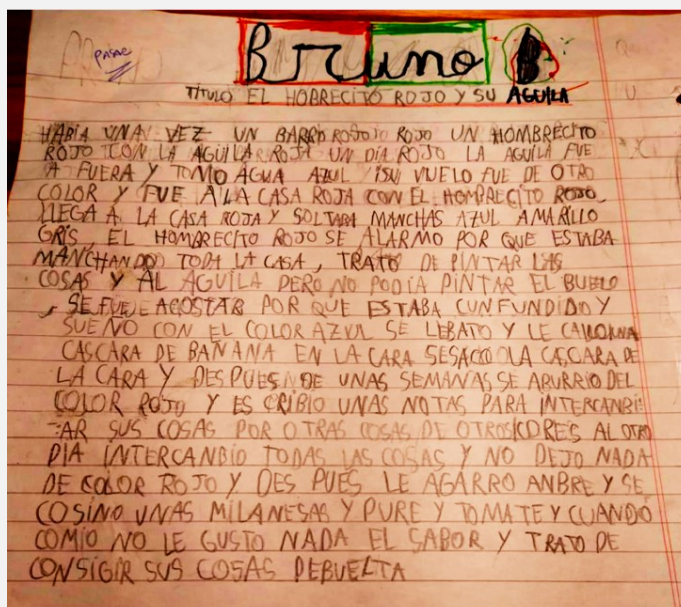 PASAR
Bruno B
TÍTULO EL HOBRECITO ROJO Y SU AGUILA
HABIA UNA VEZ UN BARRO ROJO UN HOMBRECITO
ROJO CON LA AGUILA ROJA UN DIA ROJO LA AGUILA FUE
A FUERA Y TOMO AGUA AZUL SU VUELO FUE DE OTRO
COLOR Y FUE A LA CASA ROJA CON EL HOMBRECITO ROJO
LLEGA A LA CASA ROJA Y SOLTABA MANCHAS AZUL AMARILLO
GRIS EL HOMBRECITO ROJO SE ALARMO POR QUE ESTABA
MANCHANDO TODA LA CASA, TRATO DE PINTAR LAS
COSAS Y AL AGUILA PERO NO PODIA PINTAR EL BUELO
, SE FUE E ACOSTAR POR QUE ESTABA CUNFUNDIDO Y
SUEÑO CON EL COLOR AZUL SE LEBATO Y LE CAILO UNA
CASCARA DE BANANA EN LA CARA SESACO OLA CASCARA DE
LA CARA Y DES PUES DE UNAS SEMANAS SE ABURRIO DEL
COLOR ROJO Y ES CRIBIO UNAS NOTAS PARA INTERCANBI
-AR SUS COSAS POR OTRAS COSAS DE OTROS CORES AL OTRO
DIA INTERCANBIO TODAS LAS COSAS Y NO DEJO NADA
DE COLOR ROJO Y DES PUES LE AGARRO ANBRE Y SE
COSINO UNAS MILANESAS Y PURE Y TOMATE Y CUANDO
COMIO NO LE GUSTO NADA EL SABOR Y TRATO DE
CONSIGIR SUS COSAS DEBUELTA